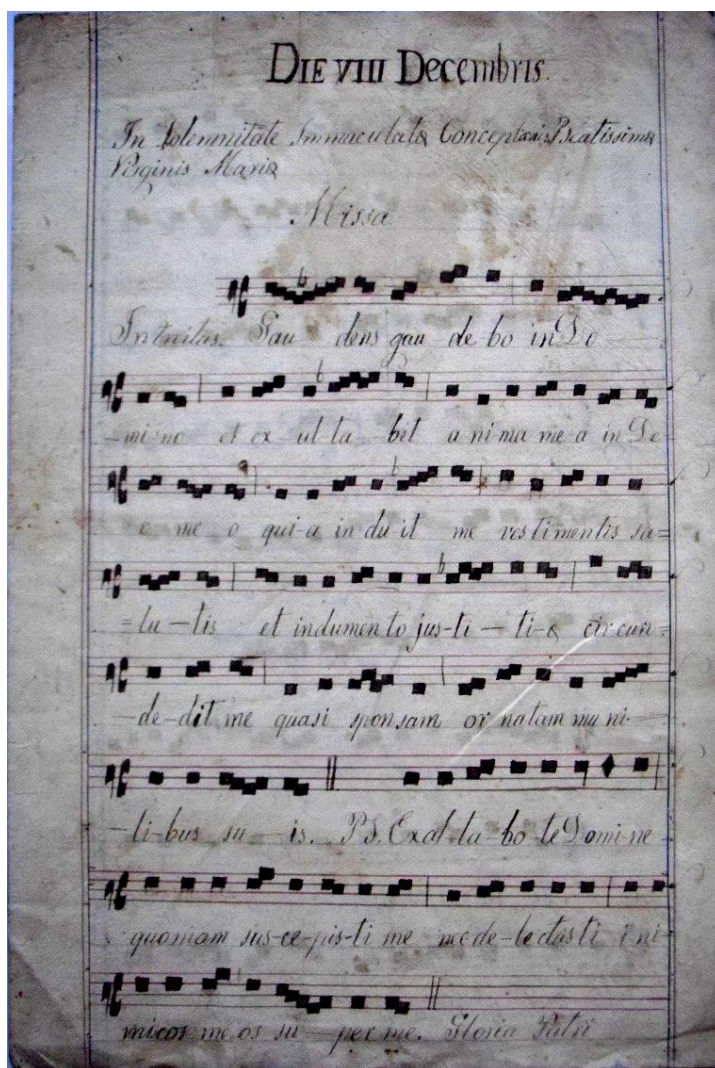 DIE VIII Decembris.
In Solemnitate Immaculatæ Conceptionis Beatissimæ
Virginis Mariæ
Missa
Introitus. Gau dens gau de-bo in Do
-mi-no et ex-ul-ta-bit a-ni-ma me-a in De-
o me o qui-a in-du-it me vestimentis sa=
=lu-tis et indumento jus-ti-ti-æ circun-
-de-dit me quasi sponsam or natam mu ni-
-li-bus su-is. PS. Exal-ta-bo-te Domi-ne
quoniam sus-ce-pis-ti me nec de-lectasti i ni-
micos me os su-per me. Gloria Patri